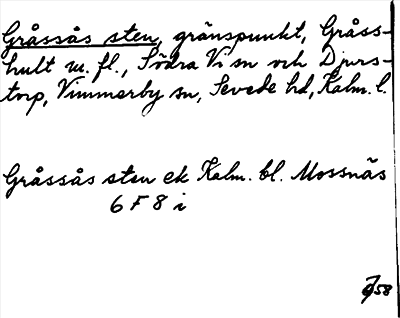 Gråssås sten, gränspunkt, Gråss-
hult m. fl., Södra Vi sn och Djurs-
torp, Vimmerby sn, Sevede hd, Kalm. l.
Gråssås sten ek Kalm. bl. Mossnäs
6 F 8 i
58